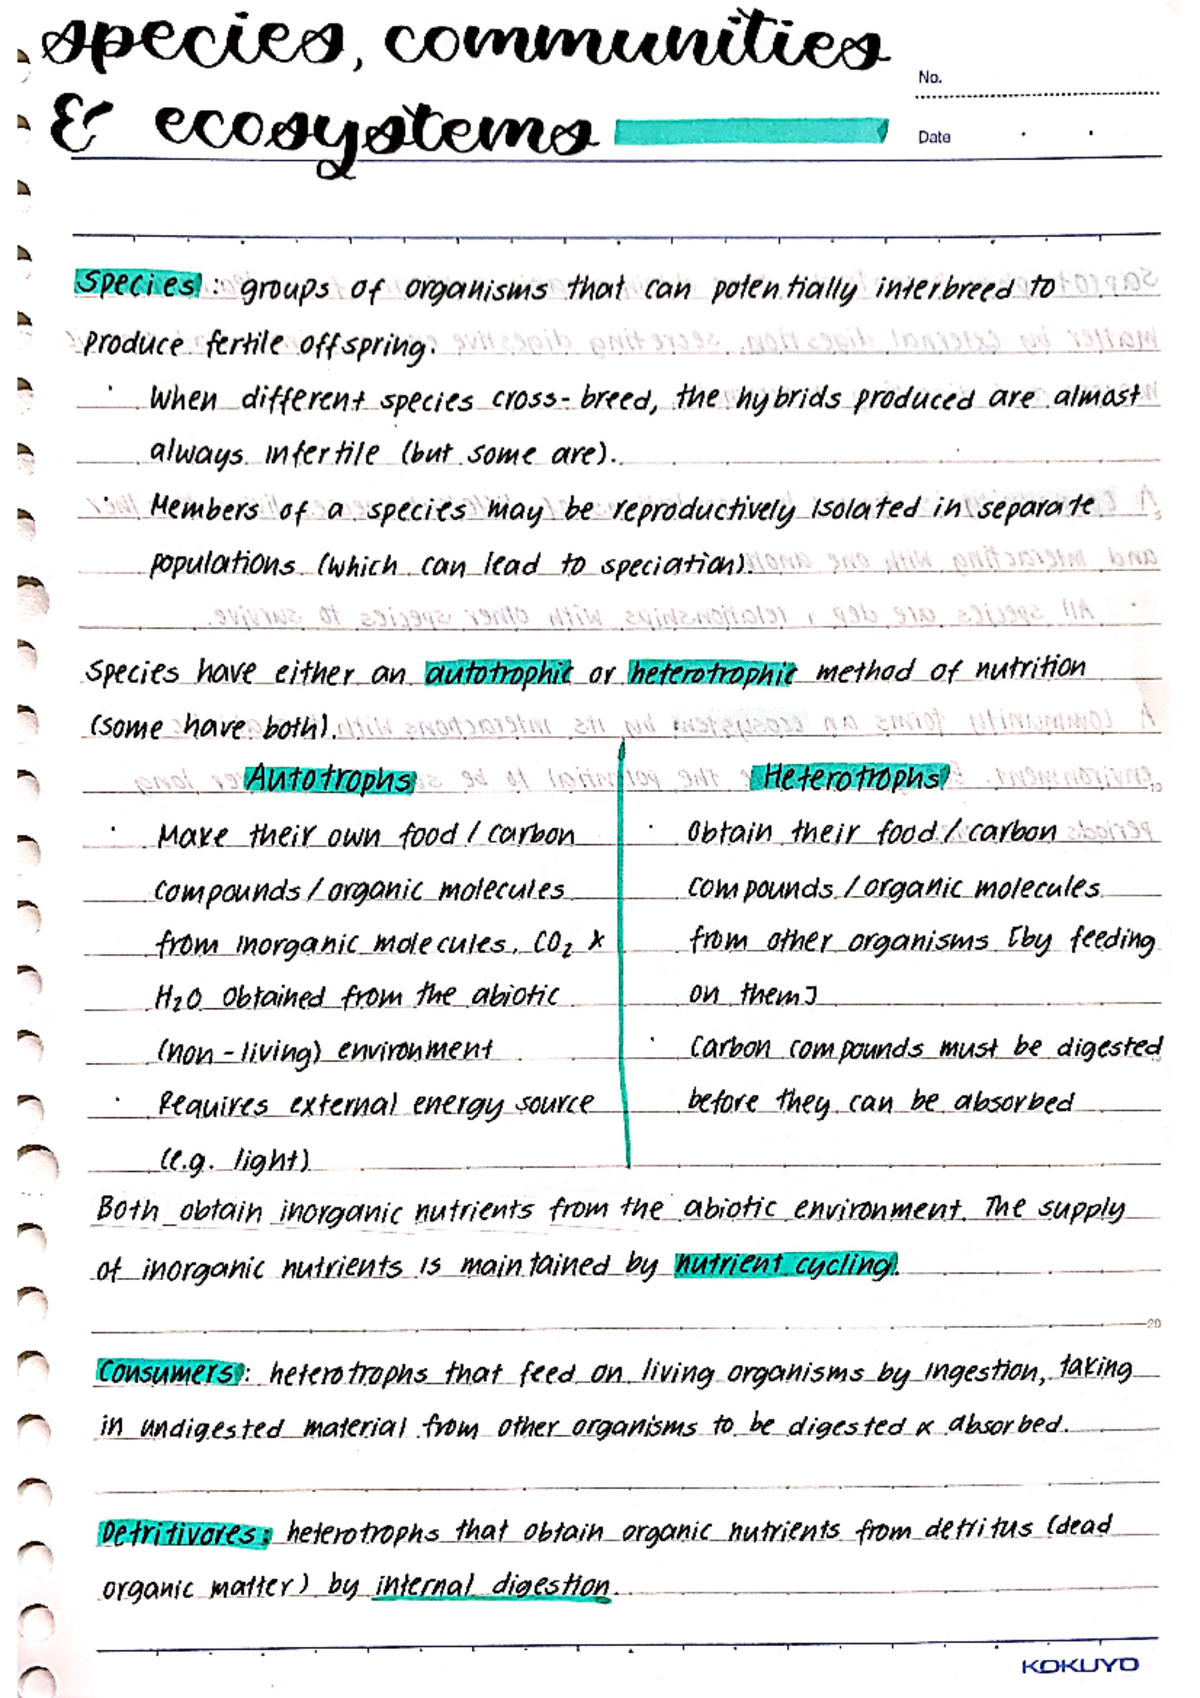 species, communities
& ecosystems
No.
Date
Species: groups of organisms that can potentially interbreed to
produce fertile offspring.
· When different species cross-breed, the hybrids produced are almost
always infertile (but some are).
· Members of a species may be reproductively isolated in separate
populations (which can lead to speciation).
Species have either an autotrophic or heterotrophic method of nutrition
(some have both).
Autotrophs
· Make their own food / carbon
compounds / organic molecules
from inorganic molecules. CO₂ &
H₂O obtained from the abiotic
(non-living) environment
· Requires external energy source
(e.g. light)
Heterotrophs
· Obtain their food / carbon
compounds / organic molecules
from other organisms [by feeding
on them]
· Carbon compounds must be digested
before they can be absorbed
Both obtain inorganic nutrients from the abiotic environment. The supply
of inorganic nutrients is maintained by nutrient cycling.
20
Consumers: heterotrophs that feed on living organisms by ingestion, taking
in undigested material from other organisms to be digested & absorbed.
Detritivores: heterotrophs that obtain organic nutrients from detritus (dead
organic matter) by internal digestion.
KOKUYO